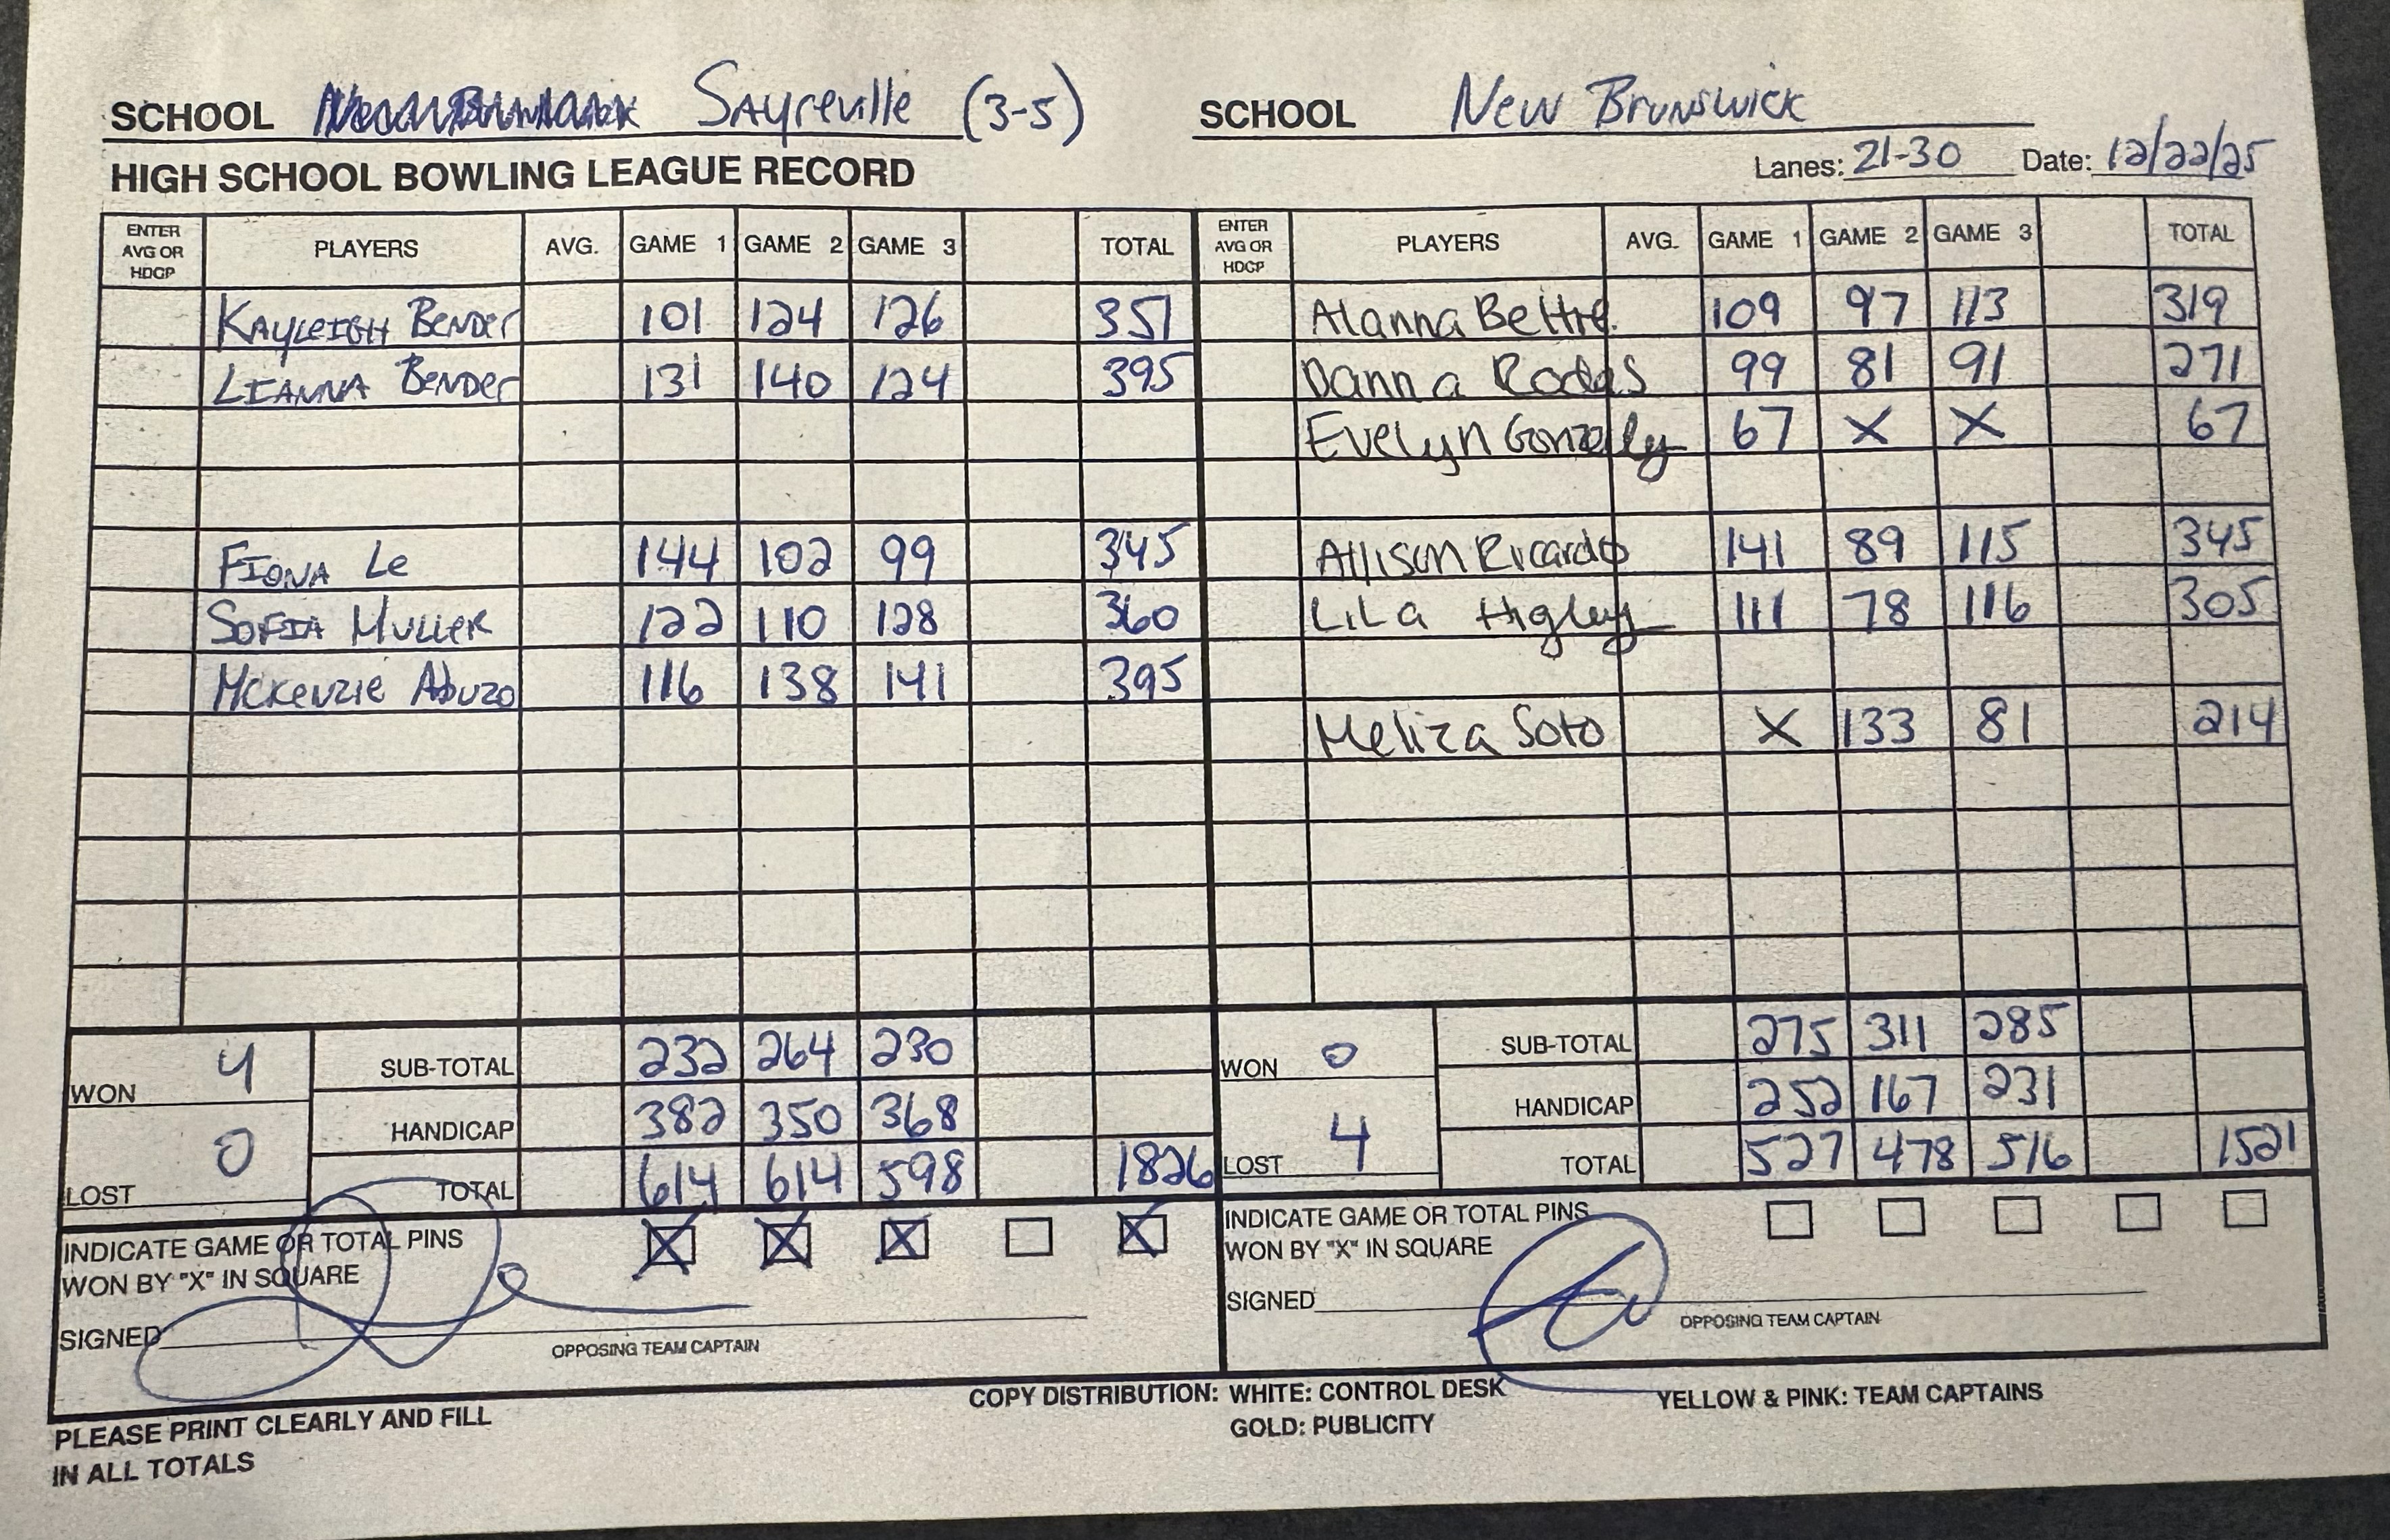 SCHOOL Sayreville (3-5) SCHOOL New Brunswick
HIGH SCHOOL BOWLING LEAGUE RECORD Lanes: 21-30 Date: 12/22/25
ENTER AVG OR HDCP PLAYERS AVG. GAME 1 GAME 2 GAME 3 TOTAL ENTER AVG OR HDCP PLAYERS AVG. GAME 1 GAME 2 GAME 3 TOTAL
KAYLEIGH BENDER 101 124 126 351 Alanna Beltre. 109 97 113 319
LIANNA BENDER 131 140 124 395 Danna Rodas 99 81 91 271
Evelyn 67 X X 67
FIONA Le 144 102 99 345 Allison Ricardo 141 89 115 345
SOFIA MULLER 122 110 128 360 LiLa Higley 111 78 116 305
McKenzie Abuzo 116 138 141 395
Meliza Soto X 133 81 214
WON 4 SUB-TOTAL 232 264 230 WON 0 SUB-TOTAL 275 311 285
HANDICAP 382 350 368 HANDICAP 252 167 231
LOST 0 TOTAL 614 614 598 1826 LOST 4 TOTAL 527 478 516 1521
INDICATE GAME OR TOTAL PINS X X X X INDICATE GAME OR TOTAL PINS
WON BY "X" IN SQUARE WON BY "X" IN SQUARE
SIGNED SIGNED
OPPOSING TEAM CAPTAIN OPPOSING TEAM CAPTAIN
PLEASE PRINT CLEARLY AND FILL COPY DISTRIBUTION: WHITE: CONTROL DESK YELLOW & PINK: TEAM CAPTAINS
IN ALL TOTALS GOLD: PUBLICITY